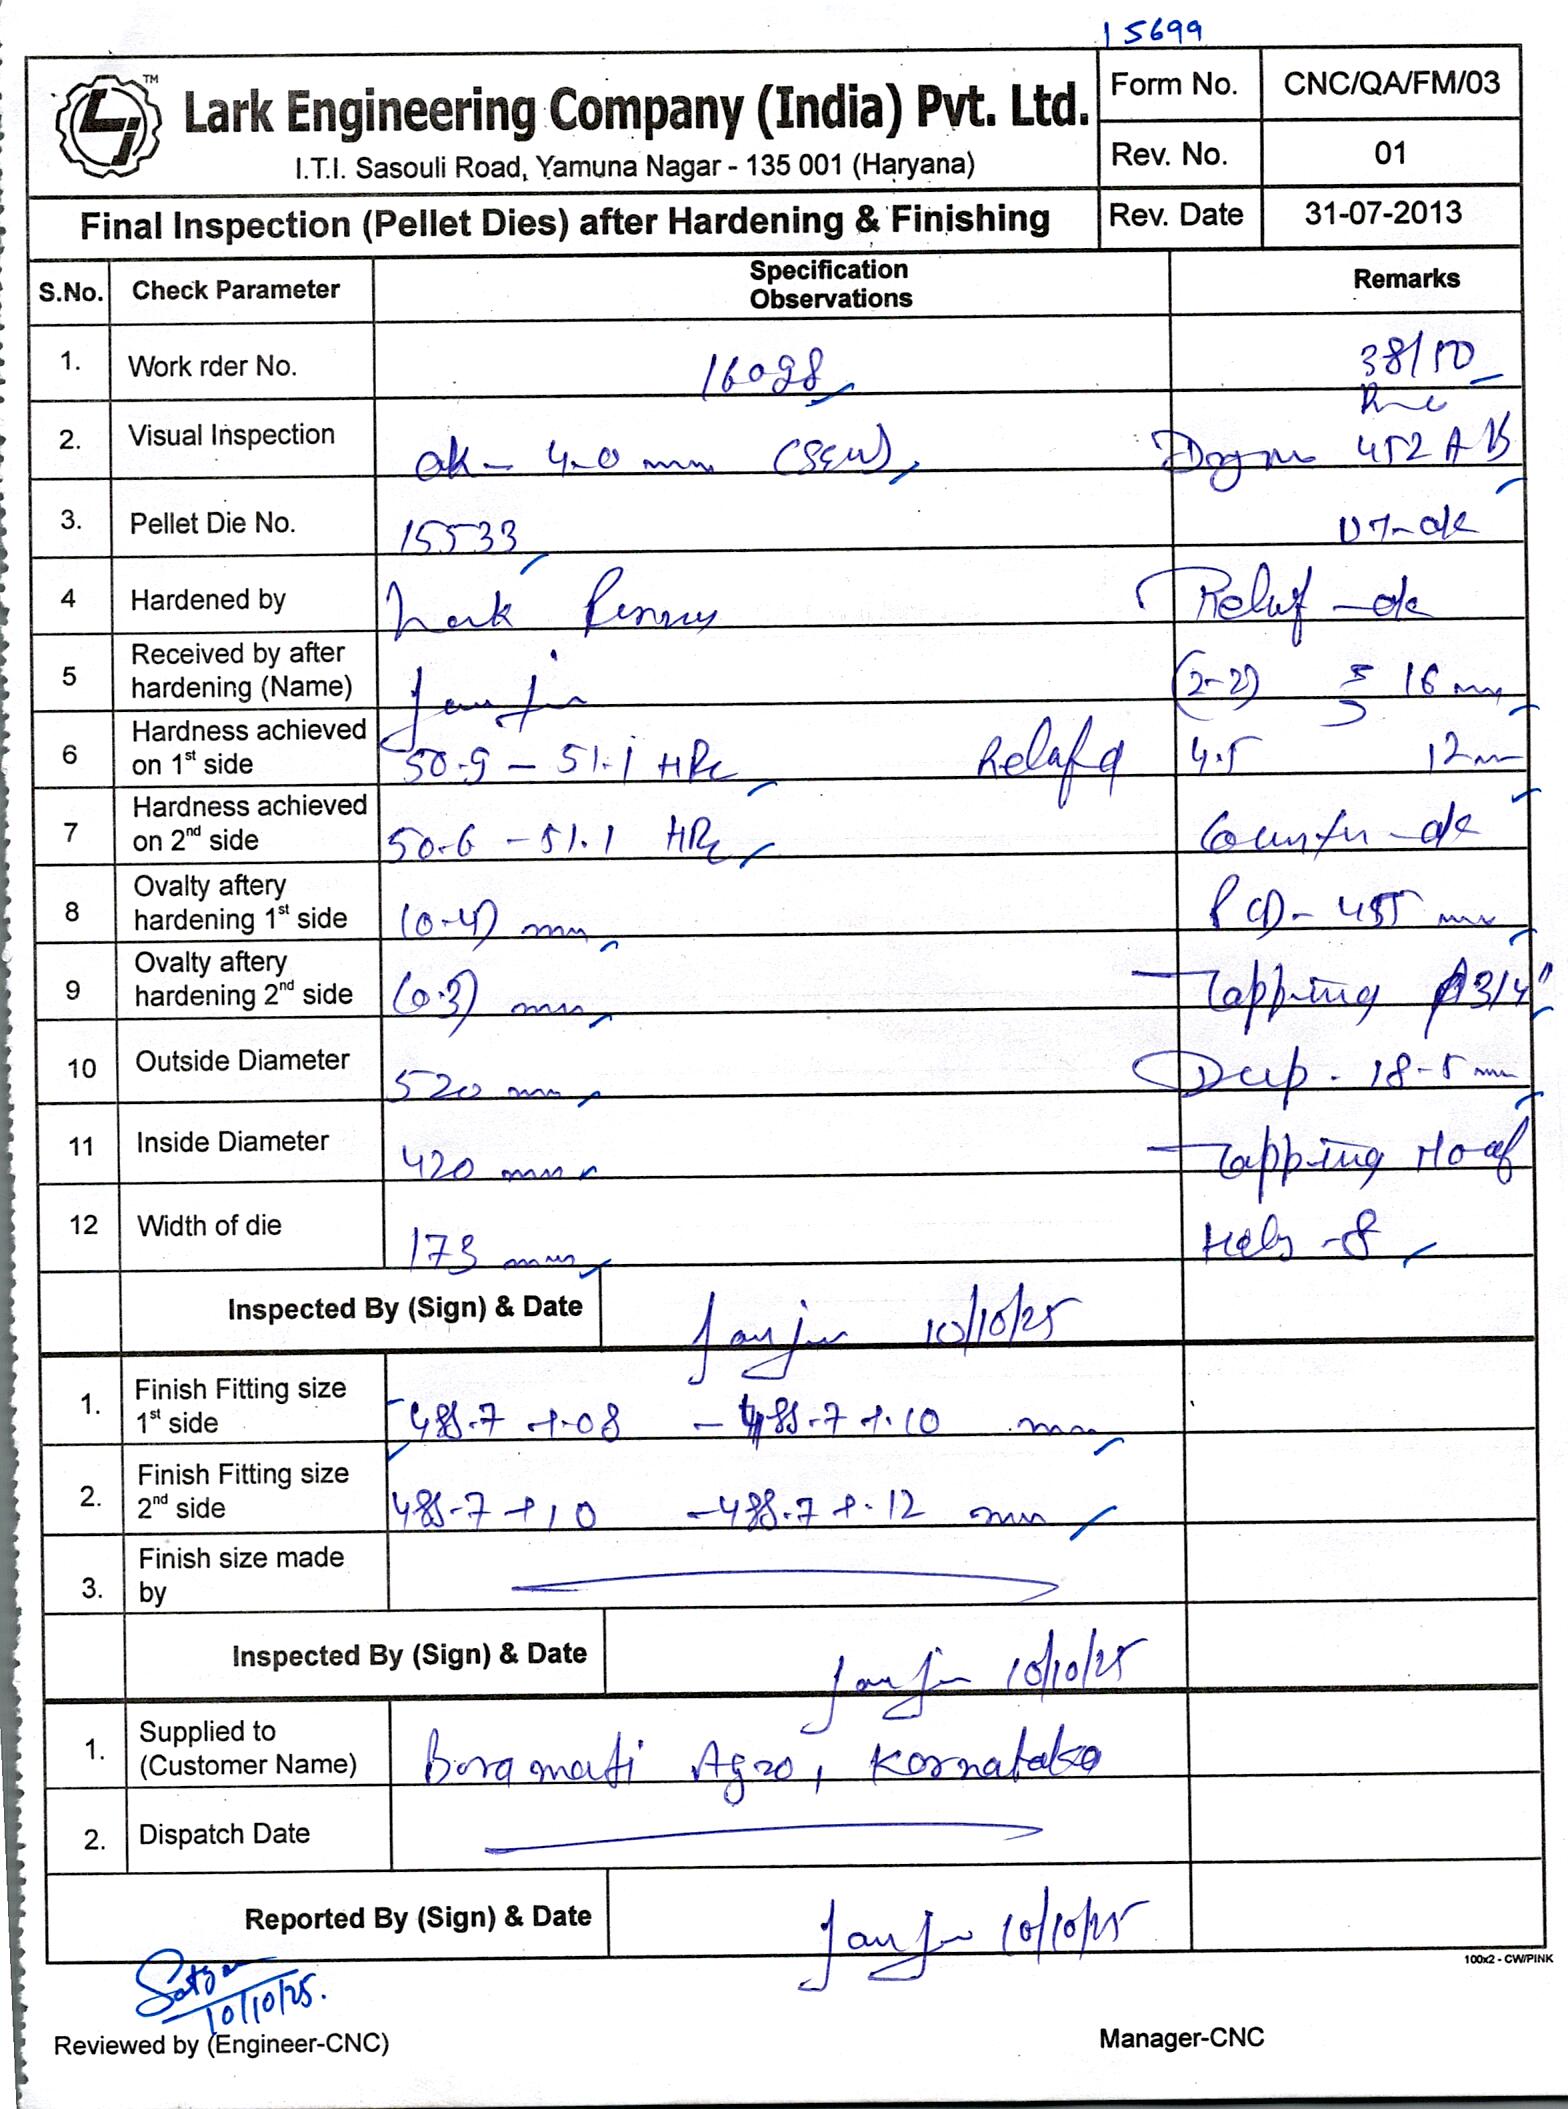 15699
TM
Lark Engineering Company (India) Pvt. Ltd.
I.T.I. Sasouli Road, Yamuna Nagar - 135 001 (Haryana)
Form No. CNC/QA/FM/03
Rev. No. 01
Final Inspection (Pellet Dies) after Hardening & Finishing
Rev. Date 31-07-2013
S.No. Check Parameter Specification Observations Remarks
1. Work rder No. 16098 38/50
2. Visual Inspection ok - 4.0 mm 452 AB
3. Pellet Die No. 15533 ok
4 Hardened by Lark Relief - ok
5 Received by after hardening (Name) (2-2) 16 mm
6 Hardness achieved on 1st side 50.9 - 51.1 HRc Relief 4.5 12 mm
7 Hardness achieved on 2nd side 50.6 - 51.1 HRc Counter - ok
8 Ovalty aftery hardening 1st side (0.4) mm PCD - 455 mm
9 Ovalty aftery hardening 2nd side (0.3) mm Tapping 3/4"
10 Outside Diameter 520 mm Deep - 18.5 mm
11 Inside Diameter 420 mm Tapping
12 Width of die 173 mm - 8
Inspected By (Sign) & Date 10/10/25
1. Finish Fitting size 1st side 485.7 +.08 - 485.7 +.10 mm
2. Finish Fitting size 2nd side 485.7 +10 - 485.7 +.12 mm
3. Finish size made by
Inspected By (Sign) & Date 10/10/25
1. Supplied to (Customer Name) Boramati Agro, Kornatako
2. Dispatch Date
Reported By (Sign) & Date 10/10/25
100x2 - CW/PINK
10/10/25.
Reviewed by (Engineer-CNC) Manager-CNC